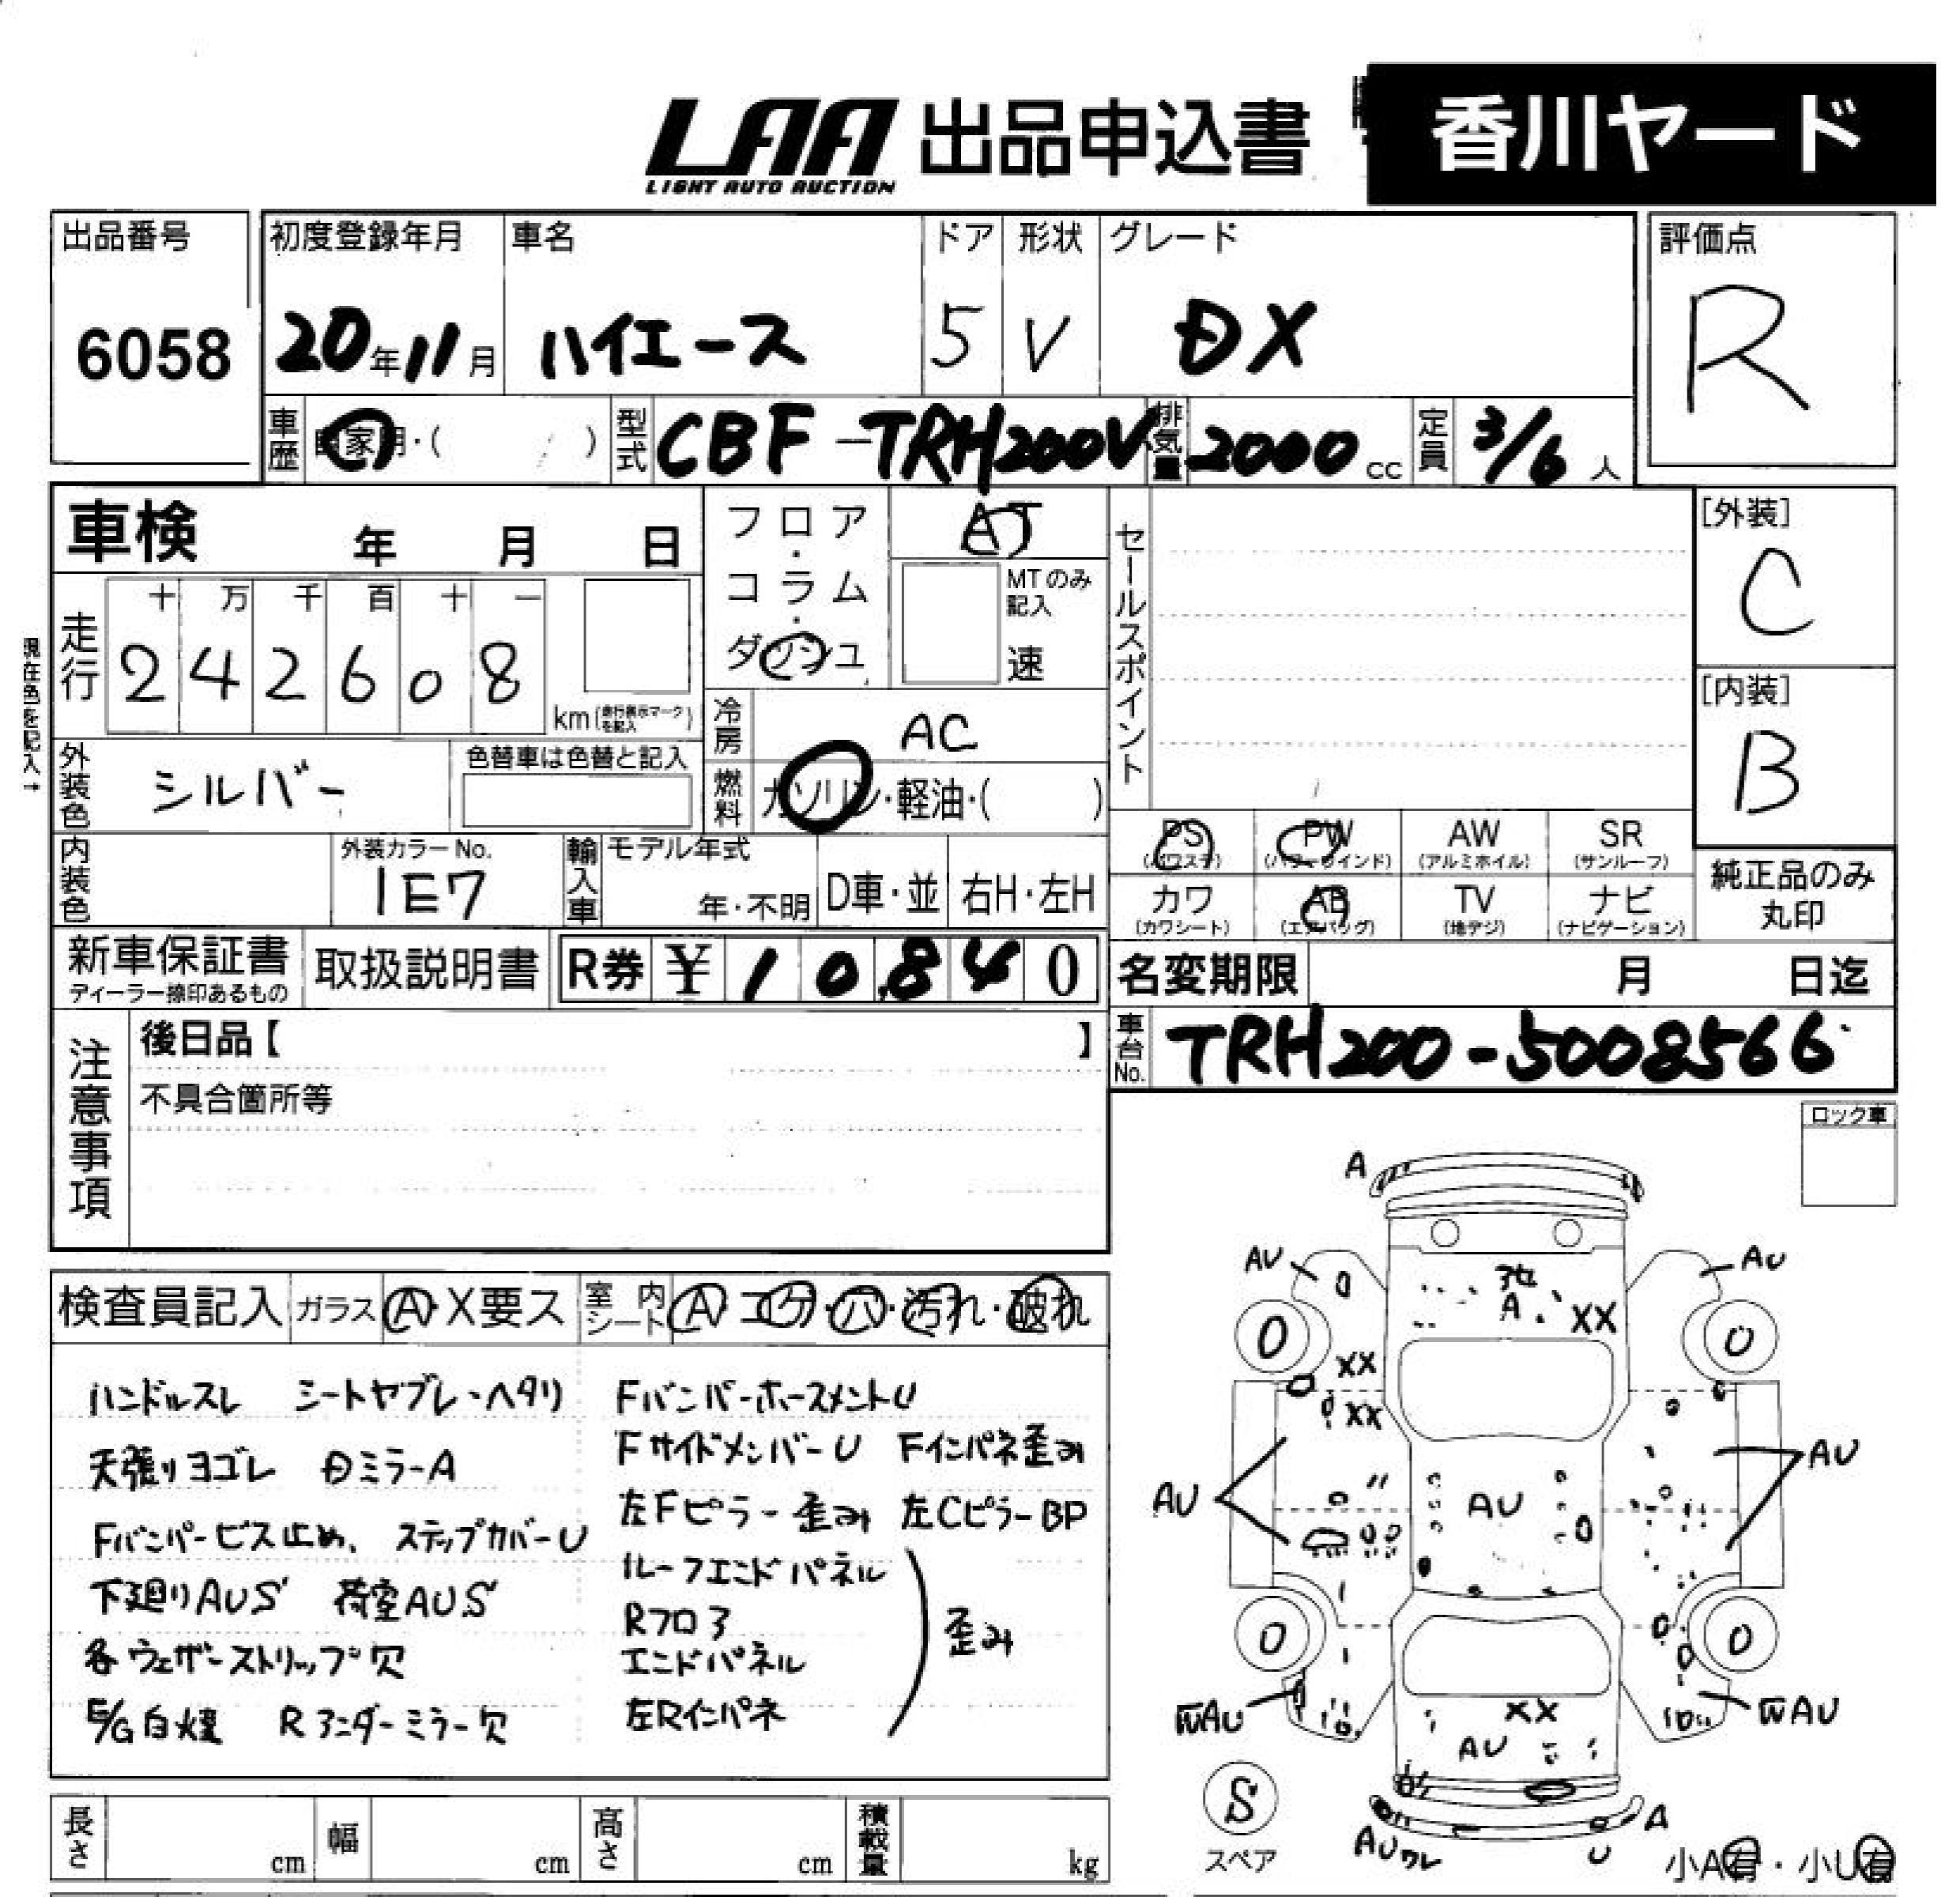 LAA 出品申込書
LIGHT AUTO AUCTION
香川ヤード
出品番号 初度登録年月 車名 ドア 形状 グレード 評価点
6058 20年11月 ハイエース 5 V DX R
車歴 自家用・( ) 型式 CBF-TRH200V 排気量 2000cc 定員 3/6人
車検 年 月 日
フロア・コラム・ダッシュ
AT
MTのみ記入
速
セールスポイント
[外装]
C
[内装]
B
現在色を記入→
走行 十 万 千 百 十 一
2 4 2 6 0 8 km(走行表示マークを記入)
冷房 AC
外装色 シルバー 色替車は色替と記入
燃料 ガソリン・軽油・( )
PS (パワステ) PW (パワーウインド) AW (アルミホイル) SR (サンルーフ)
カワ (カワシート) AB (エアバッグ) TV (地デジ) ナビ (ナビゲーション)
純正品のみ
丸印
内装色 外装カラーNo. 1E7 輸入車 モデル年式 年・不明 D車・並 右H・左H
新車保証書 ディーラー捺印あるもの 取扱説明書 R券 ¥ 1 0,8 4 0
名変期限 月 日迄
車台No. TRH200-5008566
注意事項
後日品【 】
不具合箇所等
ロック車
検査員記入 ガラス A・X要ス 室内シート A コゲ・穴・汚れ・破れ
ハンドルスレ シートヤブレ・ヘタリ
天張りヨゴレ 日ミラーA
Fバンパービス止め、ステップカバーU
下廻りAUS 荷室AUS
各ウェザーストリップ欠
E/G白煙 Rアンダーミラー欠
Fバンパーホースメント U
FサイドメンバーU Fインパネ歪み
左Fピラー歪み 左CピラーBP
ルーフエンドパネル
Rフロア
エンドパネル
左Rインパネ
歪み
A
AU AU
A
XX
XX
XX
0 0
AU AU AU
0 0
AU AU
XX
AU
S
スペア
AUワレ
U
A
小A有・小U有
長さ cm 幅 cm 高さ cm 積載量 kg